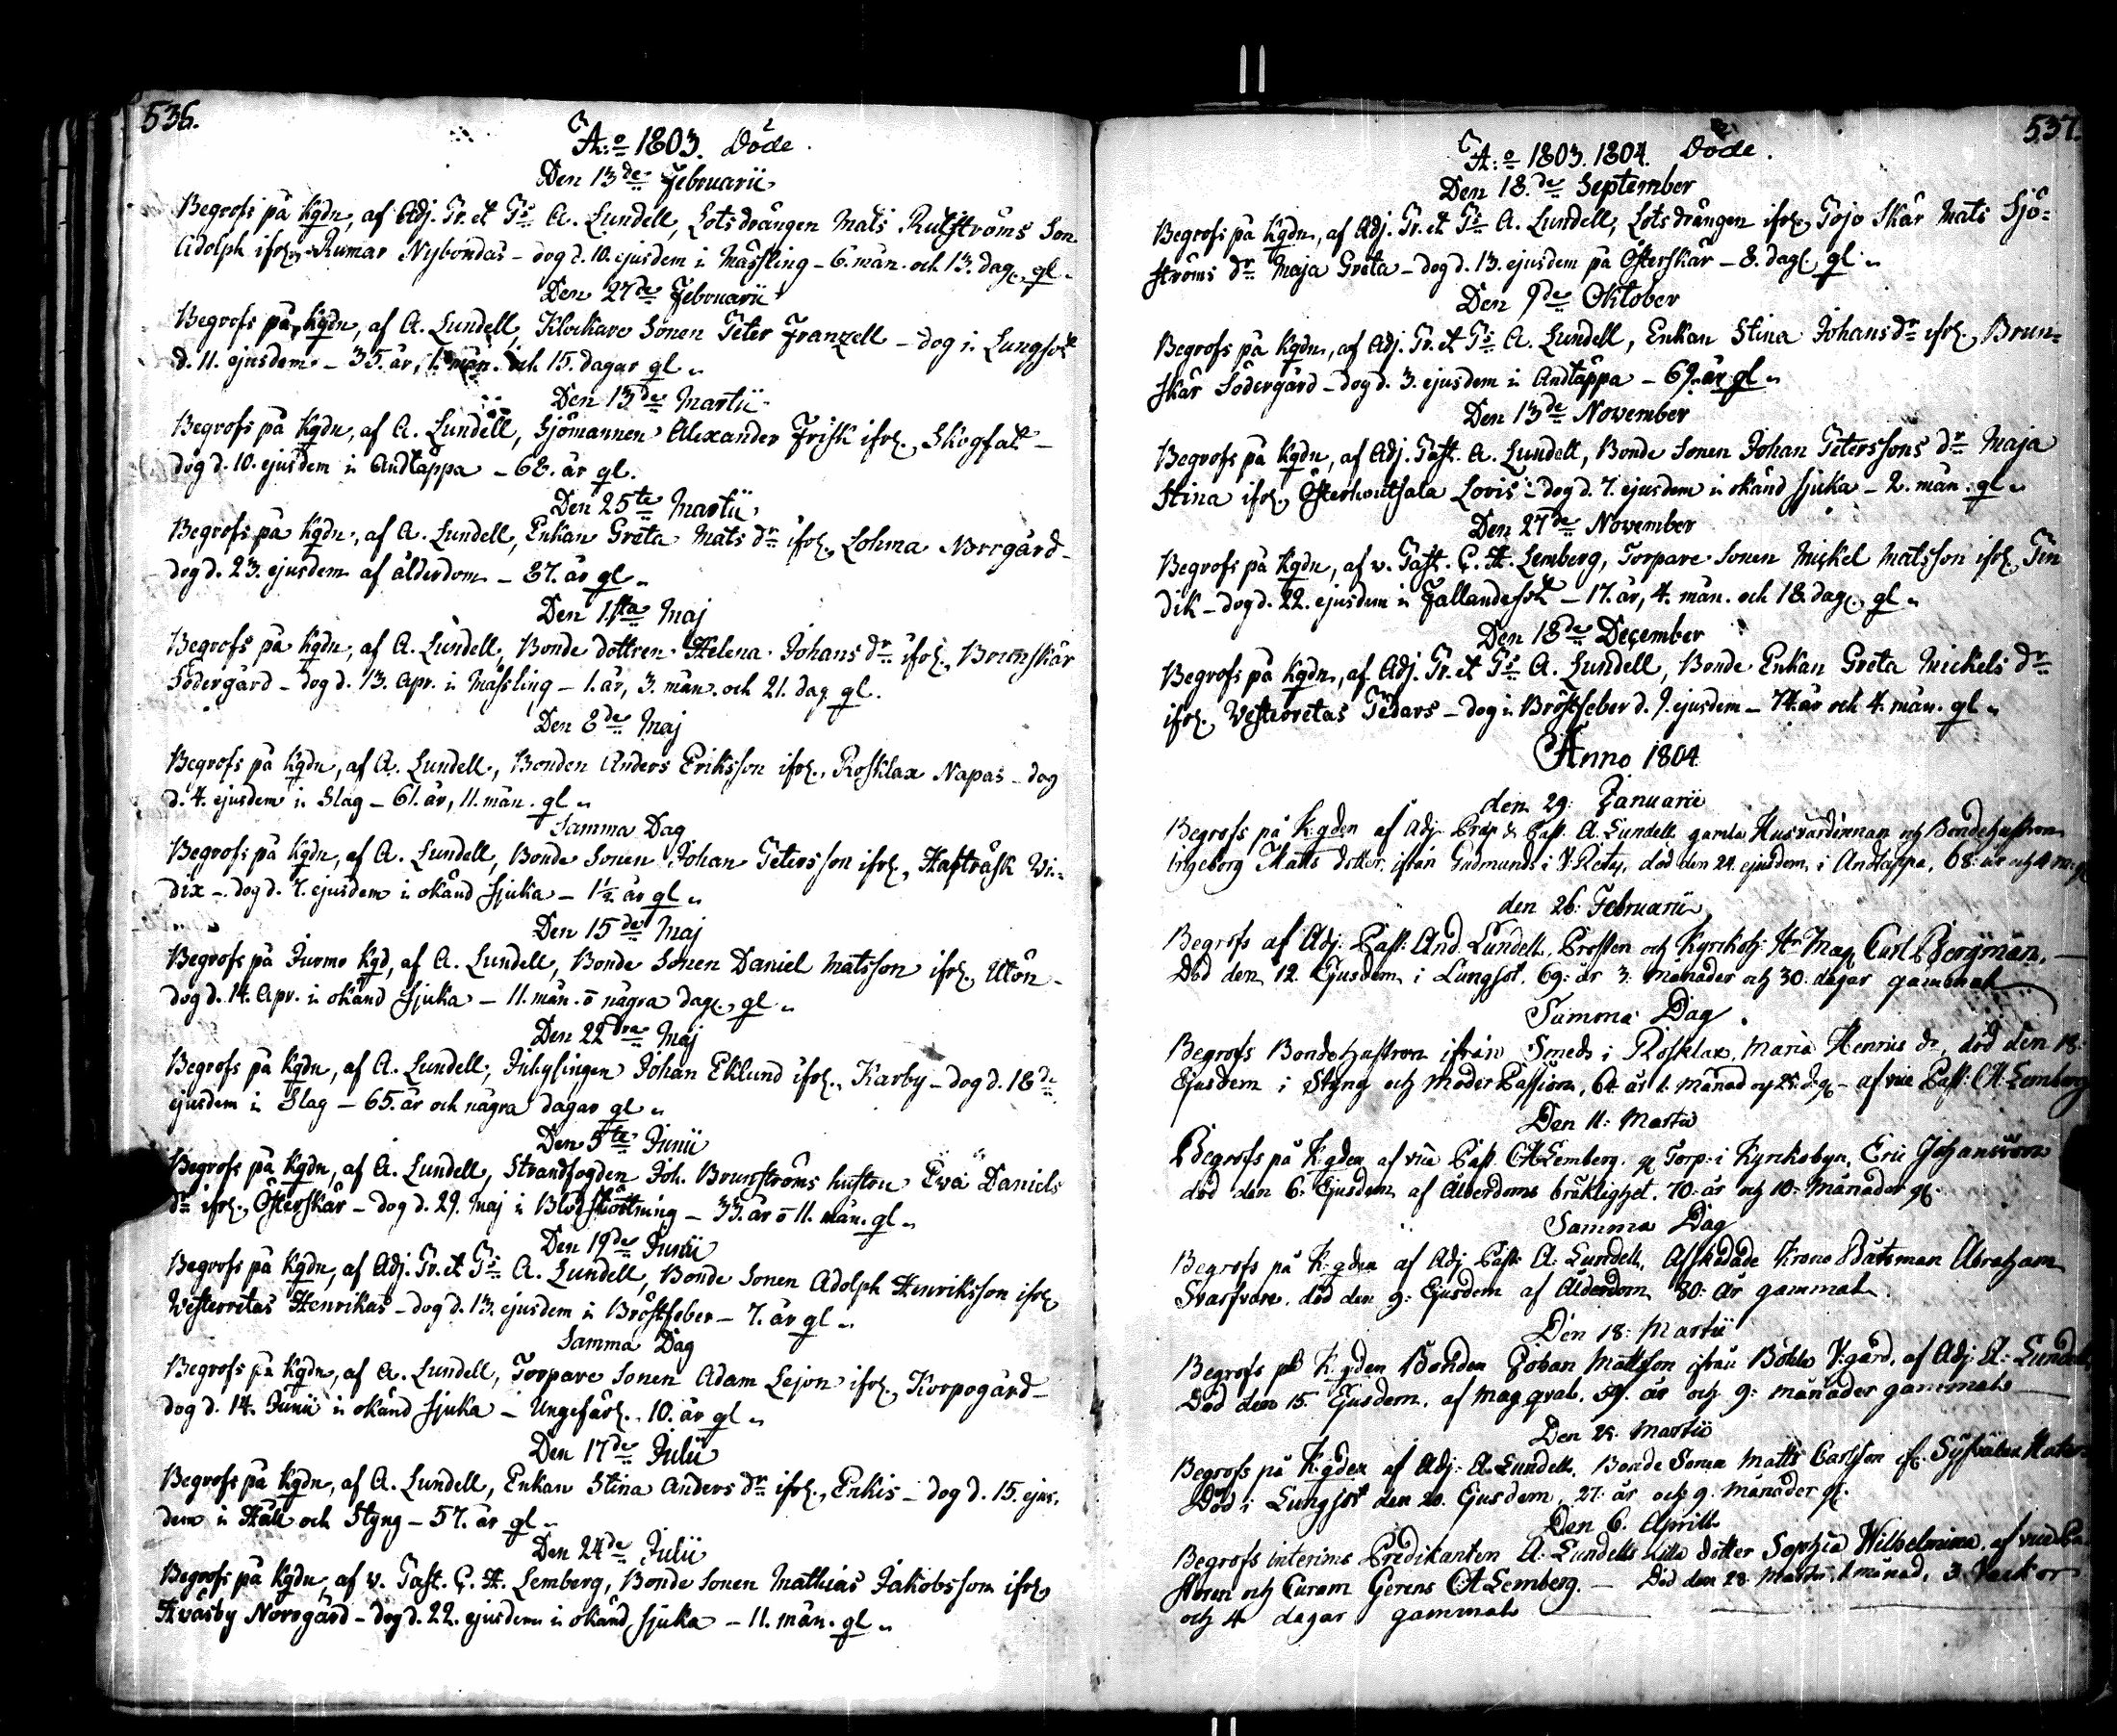 536.
A:o 1803. Döde.
Den 13de Februarii
Begrofs på Kgdn, af Adj. Pr. et Ps A. Lundell, Lotsdrängen Mats Rutströms Son
Adolph ifrn Rumar Nybondas – dog d. 10. ejusdem i Mässling – 6. mån. och 13. dag. gl.
Den 27de Februarii
Begrofs på Kgdn, af A. Lundell, Klockare Sonen Peter Franzell – dog i Lungsot
d. 11. ejusdem – 35. år, 1. mån. och 15. dagar gl.
Den 13de Martii
Begrofs på Kgdn, af A. Lundell, Sjömannen Alexander Frisk ifrn Skogfat –
dog d. 10. ejusdem i Andtäppa – 68. år gl.
Den 25te Martii
Begrofs på Kgdn, af A. Lundell, Enkan Greta Mats dr ifrn Lohma Norrgård –
dog d. 23. ejusdem af ålderdom – 87. år gl.
Den 1sta Maj
Begrofs på Kgdn, af A. Lundell, Bonde dottren Helena Johans dr ifrn Brunskär
Södergård – dog d. 13. Apr. i Mässling – 1. år, 3. mån. och 21. dag gl.
Den 8de Maj
Begrofs på Kgdn, af A. Lundell, Bonden Anders Eriksson ifrn Rosklax Napas – dog
d. 4. ejusdem i Slag – 61. år, 11. mån. gl.
Samma Dag
Begrofs på Kgdn, af A. Lundell, Bonde Sonen Johan Petersson ifrn Hafträsk Vi-
dix – dog d. 7. ejusdem i okänd sjuka – 1½ år gl.
Den 15de Maj
Begrofs på Jurmo Kgd, af A. Lundell, Bonde Sonen Daniel Matsson ifrn Utön –
dog d. 14. Apr. i okänd sjuka – 11. mån. o några dag. gl.
Den 22dra Maj
Begrofs på Kgdn, af A. Lundell, Inhysingen Johan Eklund ifrn Karby – dog d. 18de
ejusdem i Slag – 65. år och några dagar gl.
Den 5te Junii
Begrofs på Kgdn, af A. Lundell, Strandfogden Joh. Brunströms hustru Eva Daniels
dr ifrn Österskär – dog d. 29. Maj i Blodstörtning – 33. år o 11. mån. gl.
Den 19de Junii
Begrofs på Kgdn, af Adj. Pr. et Ps A. Lundell, Bonde Sonen Adolph Henriksson ifrn
Westerretas Henrikas – dog d. 13. ejusdem i Bröstfeber – 7. år gl.
Samma Dag
Begrofs på Kgdn, af A. Lundell, Torpare Sonen Adam Lejon ifrn Korpogård –
dog d. 14. Junii i okänd sjuka – Ungefär. 10. år gl.
Den 17de Julii
Begrofs på Kgdn, af A. Lundell, Enkan Stina Anders dr ifrn Enkis – dog d. 15. ejus-
dem i Håll och Styng – 57. år gl.
Den 24de Julii
Begrofs på Kgdn, af v. Past. C. H. Lemberg, Bonde Sonen Mathias Jakobsson ifrn
Hväsby Norrgård – dog d. 22. ejusdem i okänd sjuka – 11. mån. gl.
537.
A:o 1803. 1804. Döde.
Den 18de September
Begrofs på Kgdn, af Adj. Pr. et Ps A. Lundell, Lotsdrängen ifrn Jojo Skär Mats Sjö-
ströms dr Maja Greta – dog d. 13. ejusdem på Österskär – 8. dag. gl.
Den 9de Oktober
Begrofs på Kgdn, af Adj. Pr. et Ps A. Lundell, Enkan Stina Johans dr ifrn Brun-
skär Södergård – dog d. 3. ejusdem i Andtäppa – 69. år gl.
Den 13de November
Begrofs på Kgdn, af Adj. Past. A. Lundell, Bonde Sonen Johan Peterssons dr Maja
Stina ifrn Österhoutsala Lovis – dog d. 7. ejusdem i okänd sjuka – 2. mån. gl.
Den 27de November
Begrofs på Kgdn, af v. Past. C. H. Lemberg, Torpare Sonen Mickel Matsson ifrn Fin
dik – dog d. 22. ejusdem i Fallandesot – 17. år, 4. mån. och 18. dag. gl.
Den 18de December
Begrofs på Kgdn, af Adj. Pr. et Ps A. Lundell, Bonde Enkan Greta Mickels dr
ifrn Westerretas Pedars – dog i Bröstfeber d. 9. ejusdem – 74. år och 4. mån. gl.
Anno 1804
den 29: Januarii
Begrofs på K:gden af Adj. Præp & Past. A. Lundell gamla Husvärdinnan och Bondehustron
Ingeborg Matts dotter, ifrån Gudmunds i V. Retas, död den 24. ejusdem, i Andtäppa, 68: år och 4 m: gl
den 26: Februarii
Begrofs af Adj: Past: And. Lundell, Prosten och Kyrkoh: Hr Mag Carl Bergman,
Död den 12. Ejusdem i Lungsot. 69: år 3. månader och 30. dagar gammal
Samma Dag
Begrofs Bondehustron ifrån Smeds i Rosklax, Maria Henrics dr, död den 18:
Ejusdem i Styng och Moder Passion, 64. år 1. månad och 25. d. gl – af vice Past: CH Lemberg
Den 11: Martii
Begrofs på K:gden af vice Past. CH Lemberg, gl Torp. i Kyrkobyn, Eric Johansson
död den 6: Ejusdem af Ålderdoms bräklighet. 70: år och 10: Månader gl.
Samma Dag
Begrofs på K:gden af Adj Past: A: Lundell, Afskedade Krono Båtsman Abraham
Svarfvare, död den 9: Ejusdem af Ålderdom 80: år gammal.
Den 18: Martii
Begrofs på K:gden Bonden Johan Mattsson ifrån Böhle V:gård, af Adj: A: Lundell,
Död den 15. Ejusdem, af mag qval. 59. år och 9: månader gammal
Den 25. Martii
Begrofs på K:gden af Adj: A. Lundell, Bonde Sonen Matts Carlsson ifr.
Död i Lungsot den 20. Ejusdem, 27: år och 9. månader gl.
Den 6. Aprill
Begrofs interims Predikanten A: Lundells lilla dotter Sophia Wilhelmina, af
storen och Curam Gerens CH Lemberg. – Död den 28. Martii, 1 månad, 3. Veckor
och 4 dagar gammal